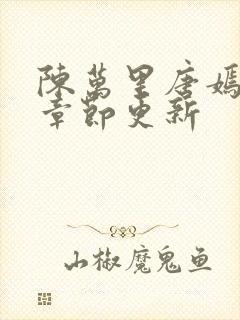 陳萬里唐嫣
章節更新
山椒魔鬼鱼